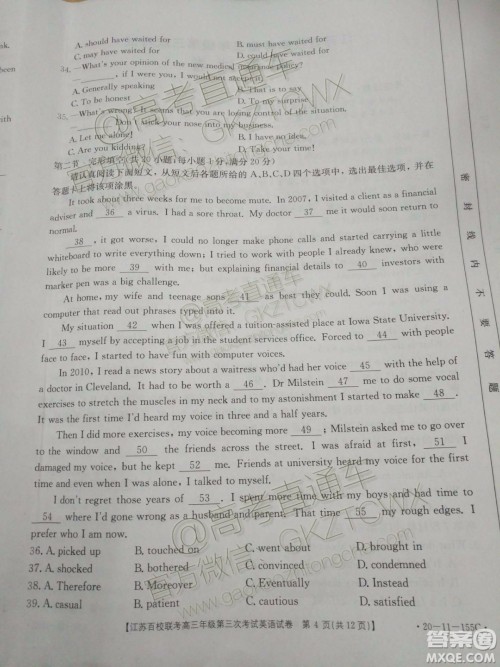 A. should have waited for B. must have waited for
C. may have waited for D. could have waited for
34. —What's your opinion of the new medical insurance policy?
—______, if I were you, I would not accept it.
A. Generally speaking B. That is to say
C. To be honest D. To my surprise
35. —What's wrong? It seems that you are losing control of the situation.
—______ Don't stick your nose into my business.
A. Let me alone! B. I have no idea.
C. Are you kidding? D. Take it easy!
第二节 完形填空(共20小题;每小题1分,满分20分)
请认真阅读下面短文,从短文后各题所给的A、B、C、D四个选项中,选出最佳选项,并在
答题卡上将该项涂黑。
It took about three weeks for me to become mute. In 2007, I visited a client as a financial
adviser and 36 a virus. I had a sore throat. My doctor 37 me it would soon return to
normal.
38 , it got worse, I could no longer make phone calls and started carrying a little
whiteboard to write everything down; I tried to keep my practice but it all went so slowly. I
looked like being more 39 with me; but explaining financial details to 40 investors with
marker pen was a big challenge.
At home, my wife and teenage sons 41 as best they could. Soon I was using a
computer that read out phrases typed into it.
My situation 42 when I was offered a tuition-assisted place at Iowa State University.
I 43 myself by accepting a job in the student services office. Forced to 44 with people
face to face, I started to have fun with computer voices.
In 2010, I read a news story about a waitress who'd had her voice 45 with the help of
a doctor in Cleveland. It had to be worth a 46 . Dr Milstein 47 my throat and used
stretches to stretch the muscles in my neck and to my astonishment I started to make 48 .
It was the first time I'd heard my voice in three and a half years.
Then I did more exercises. My voice became more 49 ; Milstein asked me to go over
to the window and 50 the friends across the street. I was afraid at first, so I 51 I
damaged my voice, but he kept 52 me. Friends at university heard my voice for the
first time and I actually talked to myself.
I don't regret those years of 53 . I spent more time with my boys and had time to
54 where I'd gone wrong as a husband and parent. That time 55 my rough edges. I
prefer who I am now.
36. A. picked up B. touched on C. went about D. brought in
37. A. shocked B. bothered C. convinced D. condemned
38. A. Therefore B. Moreover C. Eventually D. Instead
39. A. casual B. patient C. cautious D. satisfied
【江苏百校联考高三年级第三次考试英语试卷 第4页(共12页)】 ·20-11-155C·
密封线内不要答题
@高考直通车
官方微信:GKZTCWX
www.gaokaozhitongche.com
答案圈
MXQE.COM